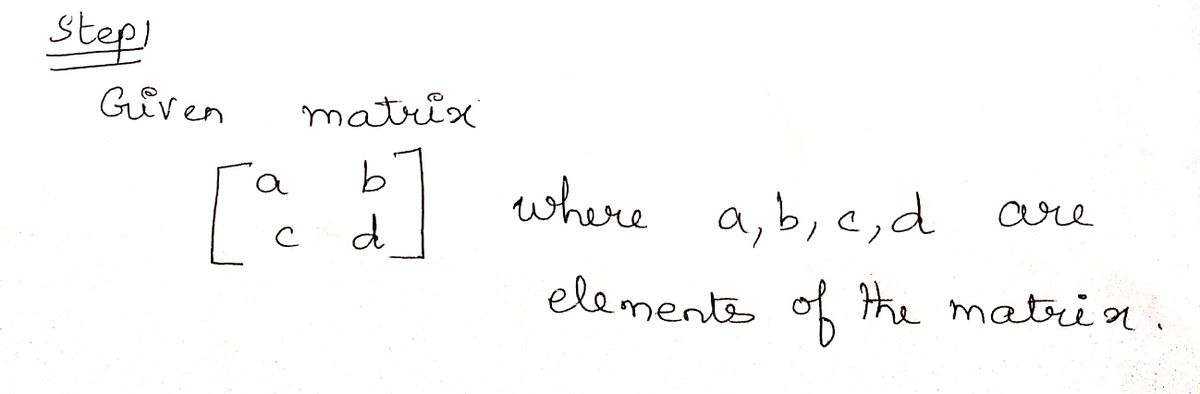 Step1
Given matrix
[a b
c d] where a, b, c, d are
elements of the matrix.